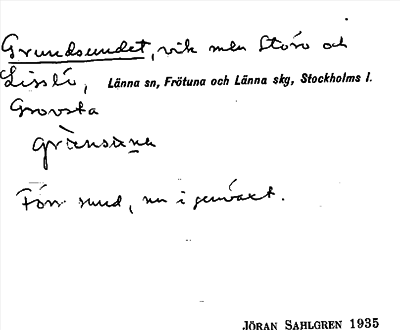 Grundsundet, vik mellan Storö och
Lisslö, Länna sn, Frötuna och Länna skg, Stockholms l.
Grovsta
Förr sund, nu igenväxt.
JÖRAN SAHLGREN 1935